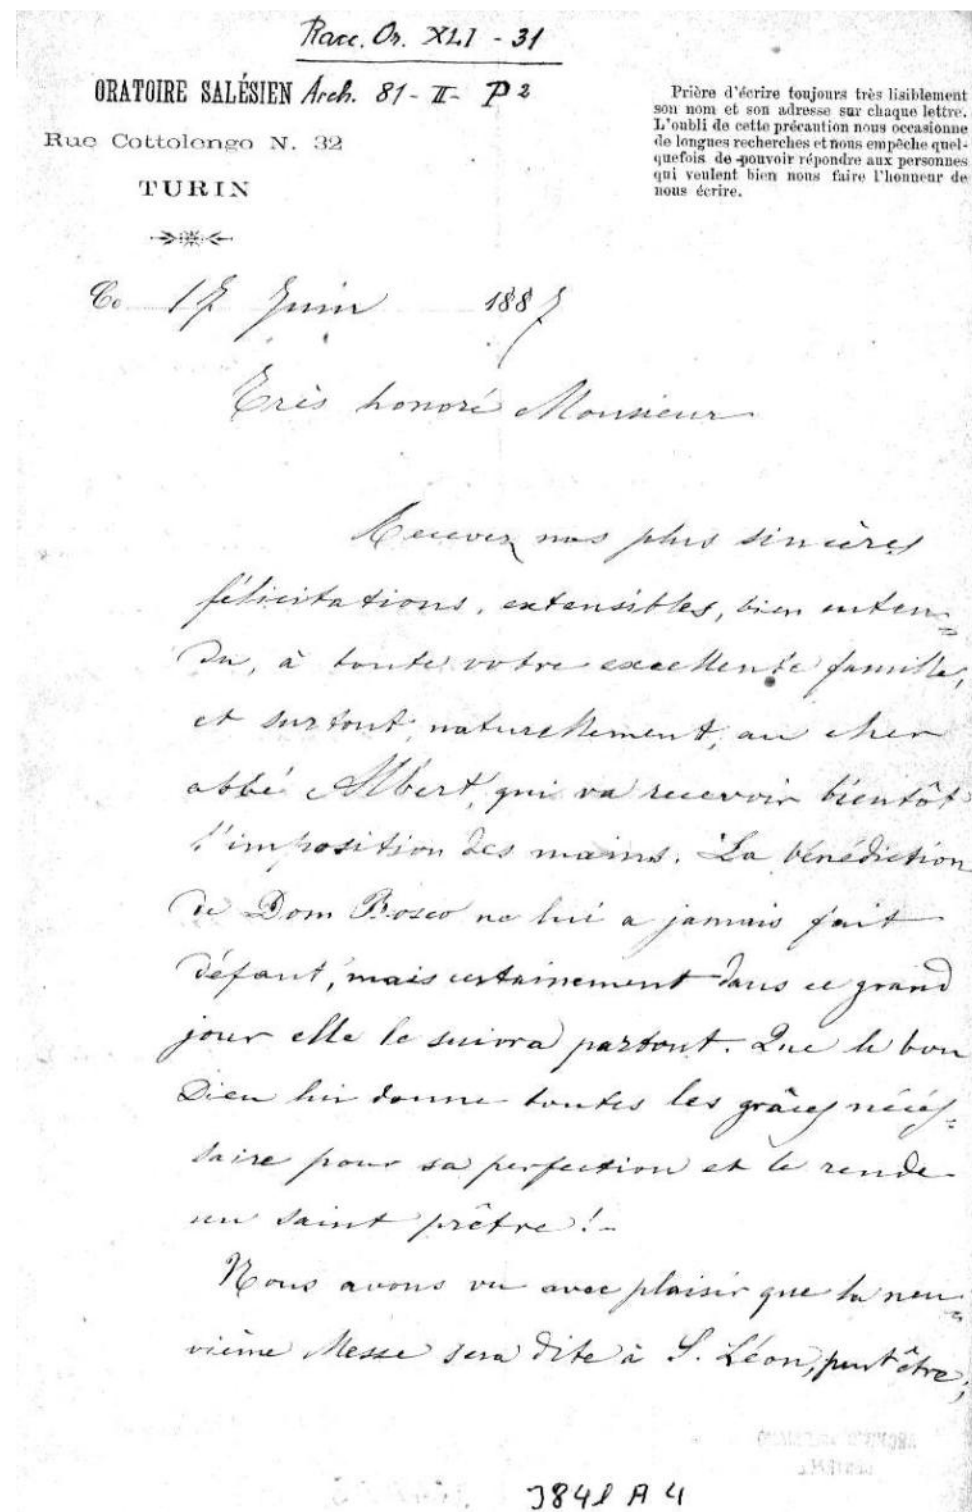 Racc. Or. XLI - 31
ORATOIRE SALÉSIEN Arch. 81 - II - P 2
Rue Cottolengo N. 32
TURIN
Prière d'écrire toujours très lisiblement
son nom et son adresse sur chaque lettre.
L'oubli de cette précaution nous occasionne
de longues recherches et nous empêche quel-
quefois de pouvoir répondre aux personnes
qui veulent bien nous faire l'honneur de
nous écrire.
Ce 17 Juin 1887
Très honoré Monsieur
Recevez nos plus sincères
félicitations, extensibles, bien enten=
du, à toute votre excellente famille,
et surtout, naturellement, au cher
abbé Albert, qui va recevoir bientôt
l'imposition des mains. La bénédiction
de Dom Bosco ne lui a jamais fait
défaut, mais certainement dans ce grand
jour elle le suivra partout. Que le bon
Dieu lui donne toutes les grâces néces=
saire pour sa perfection et le rende
un saint prêtre! -
Nous avons vu avec plaisir que la neu=
vième Messe sera dite à S. Léon, peut être,
3841 A 4